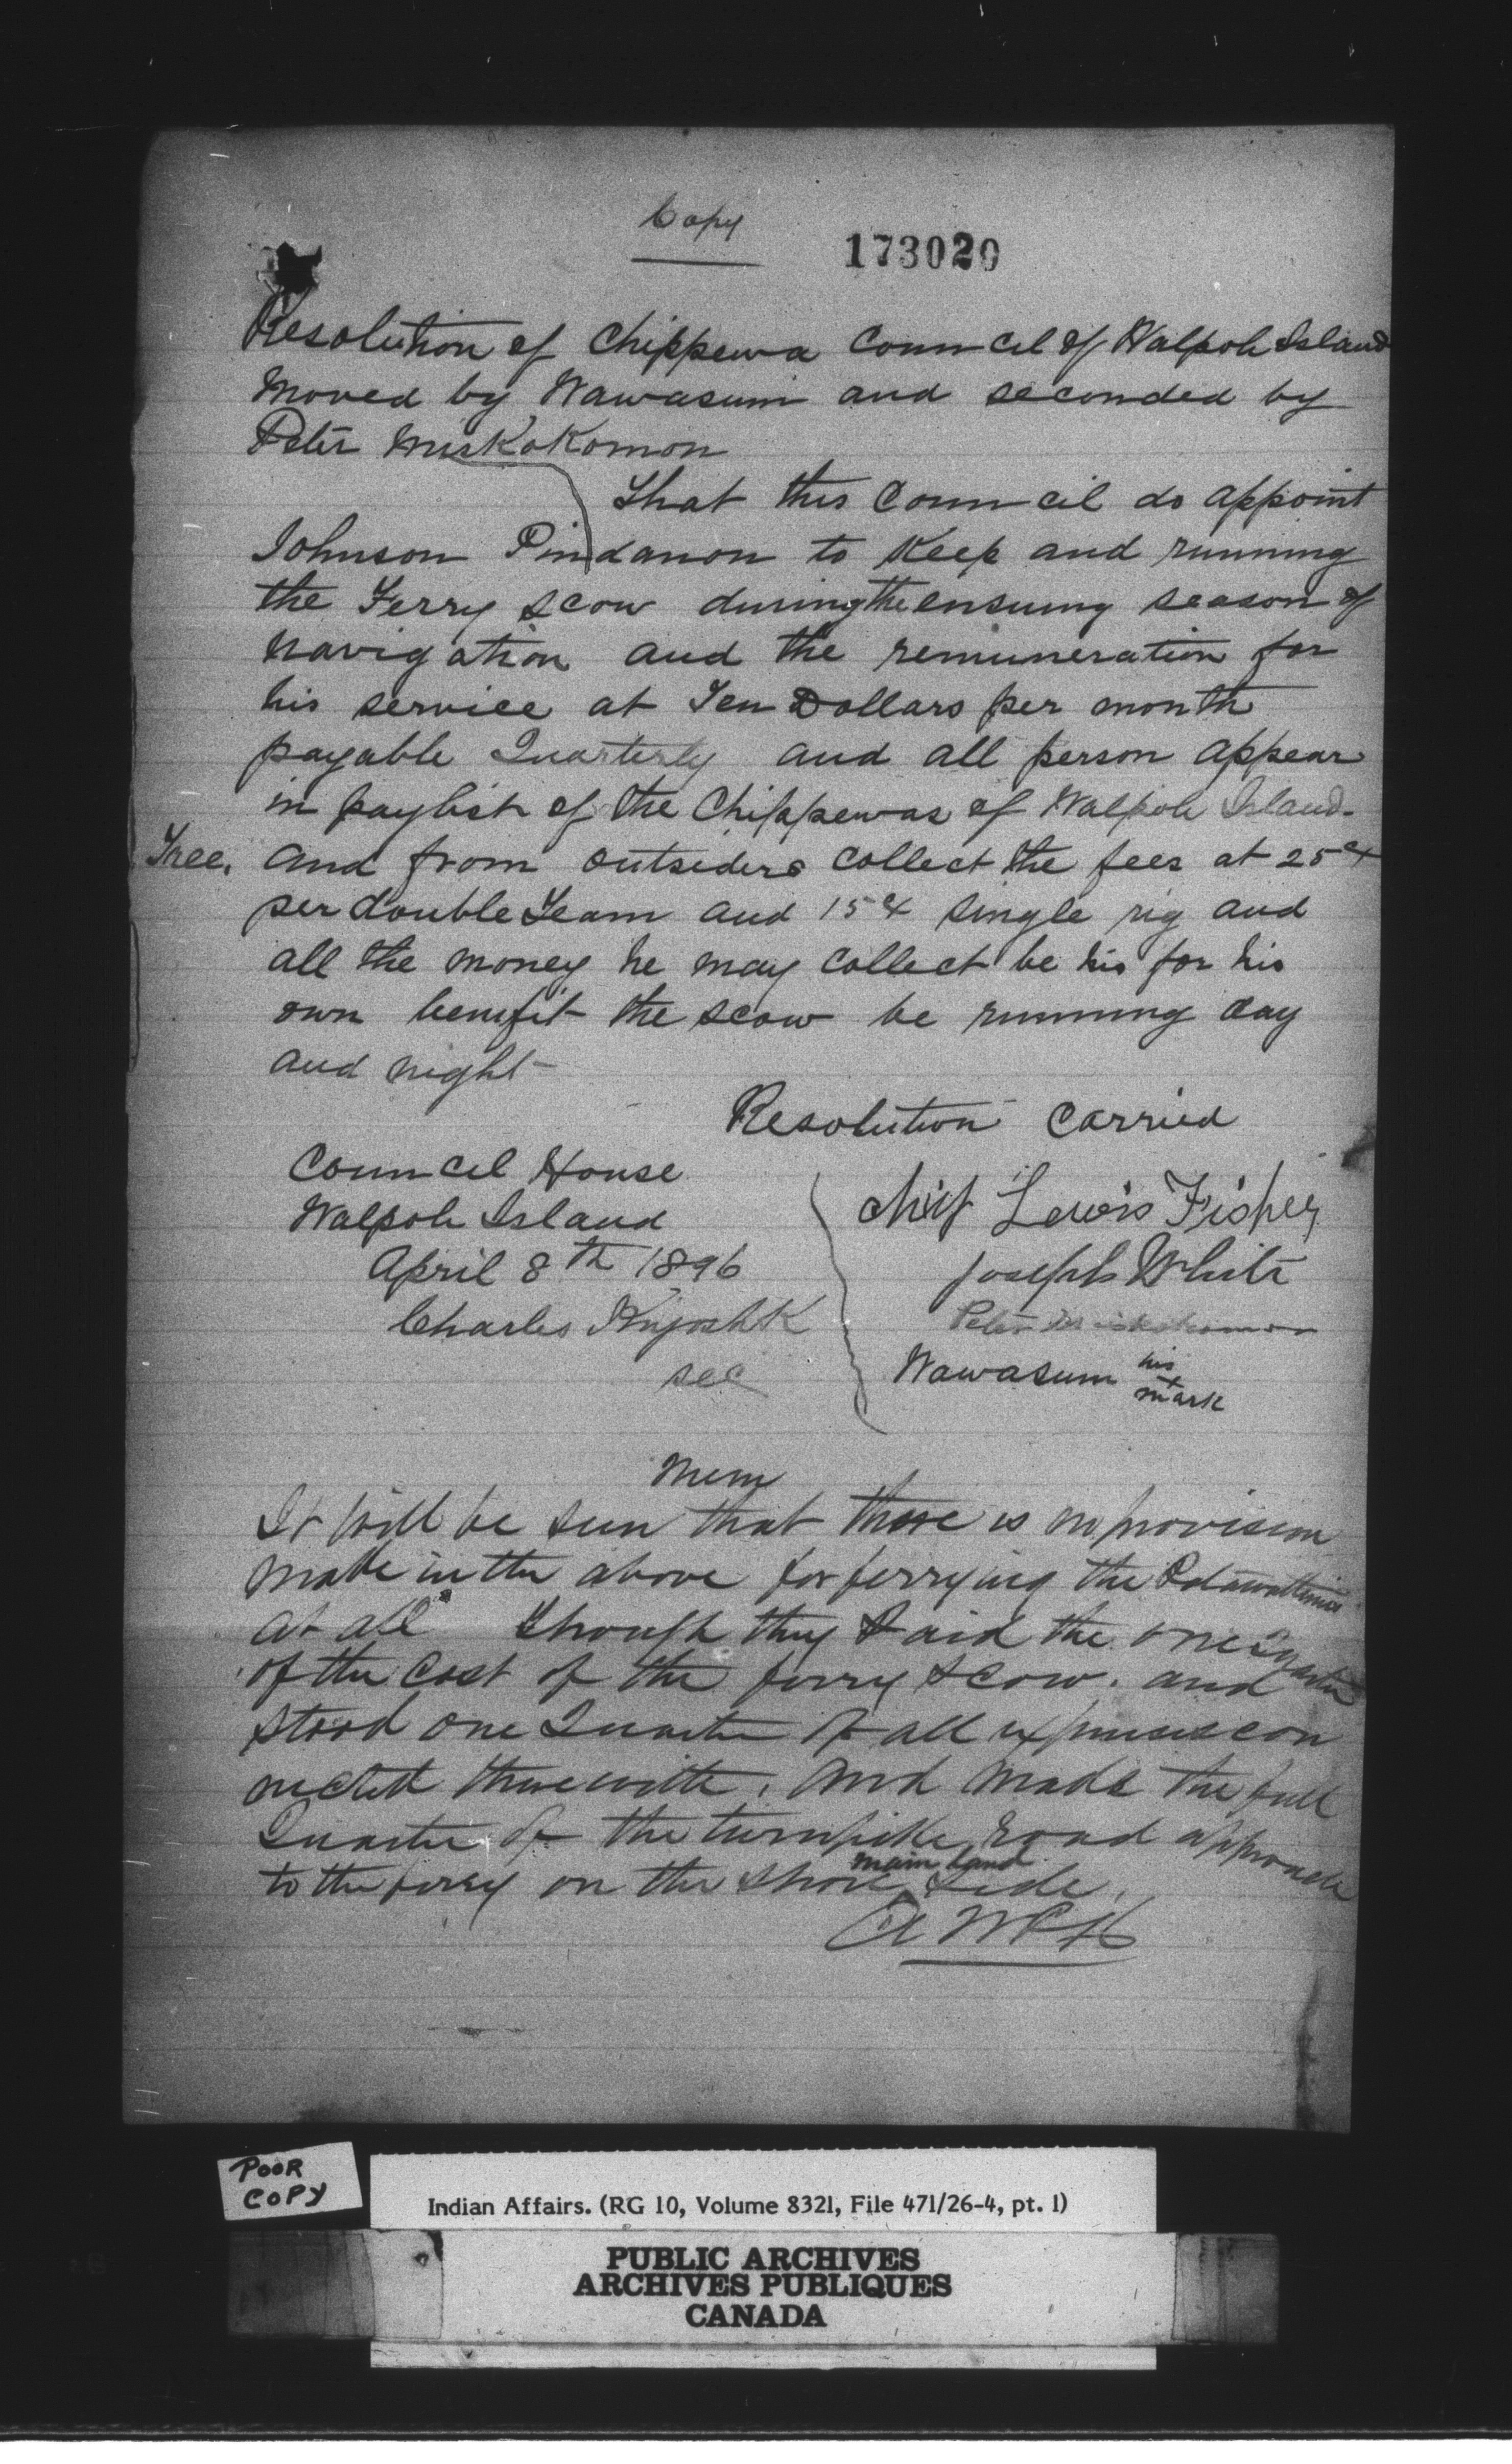 Copy
173020
Resolution of Chippewa Council of Walpole Island
Moved by Wawasum and seconded by
Peter Miskokomon
That this Council do appoint
Johnson Pindanon to Keep and running
the Ferry scow during the ensuing season of
navigation and the remuneration for
his service at Ten Dollars per month
payable Quarterly and all person appear
in paylist of the Chippewas of Walpole Island
Free. and from outsiders collect the fees at 25 cts
per double Team and 15 cts single rig and
all the money he may collect be his for his
own benefit the scow be running day
and night
Resolution Carried
Council House
Walpole Island
April 8th 1896
Charles Kiyoshk
sec
Chief Lewis Fisher
Joseph White
Peter Miskokomon
Wawasum his
x
mark
Mem
It will be seen that there is no provision
made in the above for ferrying the Potawattimies
at all though they paid the one quarter
of the cost of the ferry scow. and
stood one Quarter of all expenses con
nected therewith. and made the full
Quarter of the turnpike road approach
to the ferry on the shore main land side.
A McK
POOR
COPY
Indian Affairs. (RG 10, Volume 8321, File 471/26-4, pt. 1)
PUBLIC ARCHIVES
ARCHIVES PUBLIQUES
CANADA